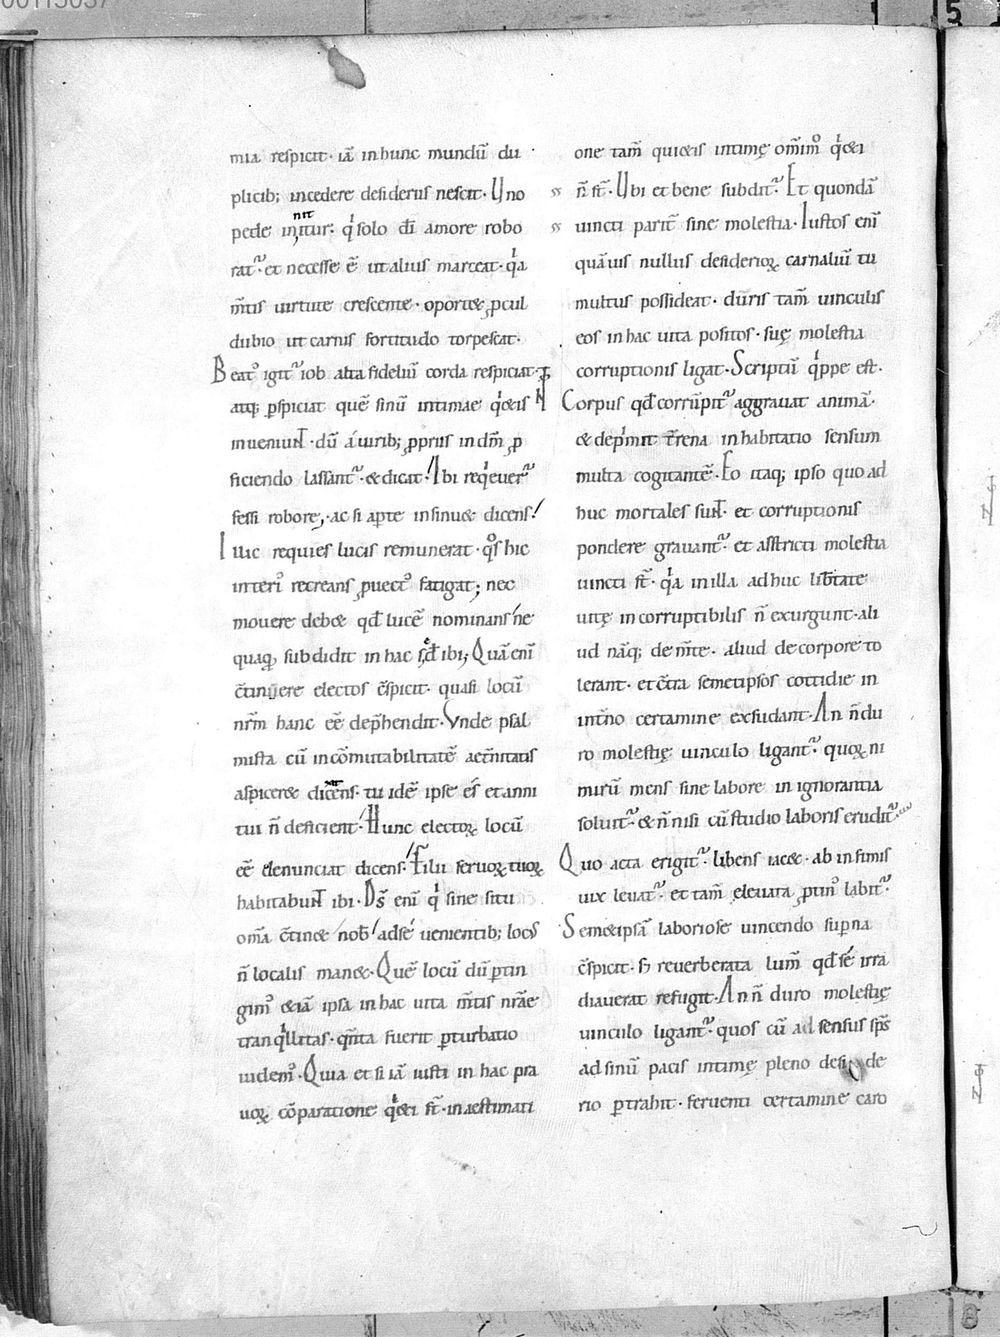 mia respicit· iā in hunc mundū du
plicib; incedere desideriis nescit· Uno
pede innititur: qͥ solo dī amore robo
rat᷑· et necesse ē ut alius marceat· qͥa
m̄tis uirtute crescente· oportet ꝓcul
dubio ut carnis fortitudo torpescat·
Beatꝰ igit᷑ iob alta fideliū corda respiciat·
atq; ꝑspiciat quē sinū intimae qͥetis
inueniunt· dū a uirib; ꝓpriis in dm̄ ꝓ
ficiendo lassant᷑· & dicat· Ibi reqͥeuer᷑
fessi robore, ac si aꝑte insinuet dicens!
Illic requies lucis remunerat· qͦs hic
interiꝰ recreans ꝓuectꝰ fatigat; nec
mouere debet qđ lucē nominans ne
quaq, subdidit in hac sed ibi; Quā enī
c̄tinere electos c̄spicit· quasi locū
nrm̄ hanc eē dep̄hendit· Vnde psal
mista cū incōmutabilitatē aet̄nitatis
aspiceret dicens· tu idē ipse es et anni
tui n̄ deficient· Hunc electoꝝ locū
eē denunciat dicens· Filii seruoꝝ tuoꝝ
habitabunt ibi· Ds̄ enī qͥ sine situ
om̄a c̄tinet nob ad se uenientib; locꝰ
n̄ localis manet· Quē locū dū ꝑtin
gimꝰ &iā ipsa in hac uita m̄tis nrāe
tranqͥllitas· qn̄ta fuerit ꝑturbatio
uidemꝰ· Quia et si iā iusti in hac pra
uoꝝ cōparatione qͥeti st̄· in aestimati
one tam̄ quietis intimę om̄imͦ qͥeti
n̄ st̄· Ubi et bene subdit᷑· Et quondā
uincti parit̄ sine molestia· Iustos enī
quāuis nullus desiderioꝝ carnaliū tu
multus possideat· duris tam̄ uinculis
eos in hac uita positos· suę molestia
corruptionis ligat· Scriptū qͥppe est·
Corpus qđ corrūpit᷑ aggrauat animā·
& depͥmit t̄rena inhabitatio sensum
multa cogitantē· Eo itaq; ipso quo ad
huc mortales sunt· et corruptionis
pondere grauant᷑· et astricti molestia
uincti st̄· qͥa in illa adhuc lib̄tate
uitę incorruptibilis n̄ exurgunt· ali
ud nāq; de m̄te· aliud de corpore to
lerant· et c̄tra semetipsos cottidie in
int̄no certamine exsudant· An n̄ du
ro molestię uinculo ligant᷑· quoꝝ ni
mirū mens sine labore in ignorantia
soluit᷑· & n̄ nisi cū studio laboris erudit᷑
Quo acta erigit᷑· libens iacet· ab infimis
uix leuat᷑· et tam̄ eleuata ꝓtinꝰ labit᷑·
Semetipsā laboriose uincendo suꝑna
c̄spicit· sꝫ reuerberata lum̄ qđ se irra
diauerat refugit· An n̄ duro molestię
uinculo ligant᷑· quos cū ad sensus sp̄s
ad sinū pacis intimę pleno deside
rio ꝑtrahit· feruenti certamine caro